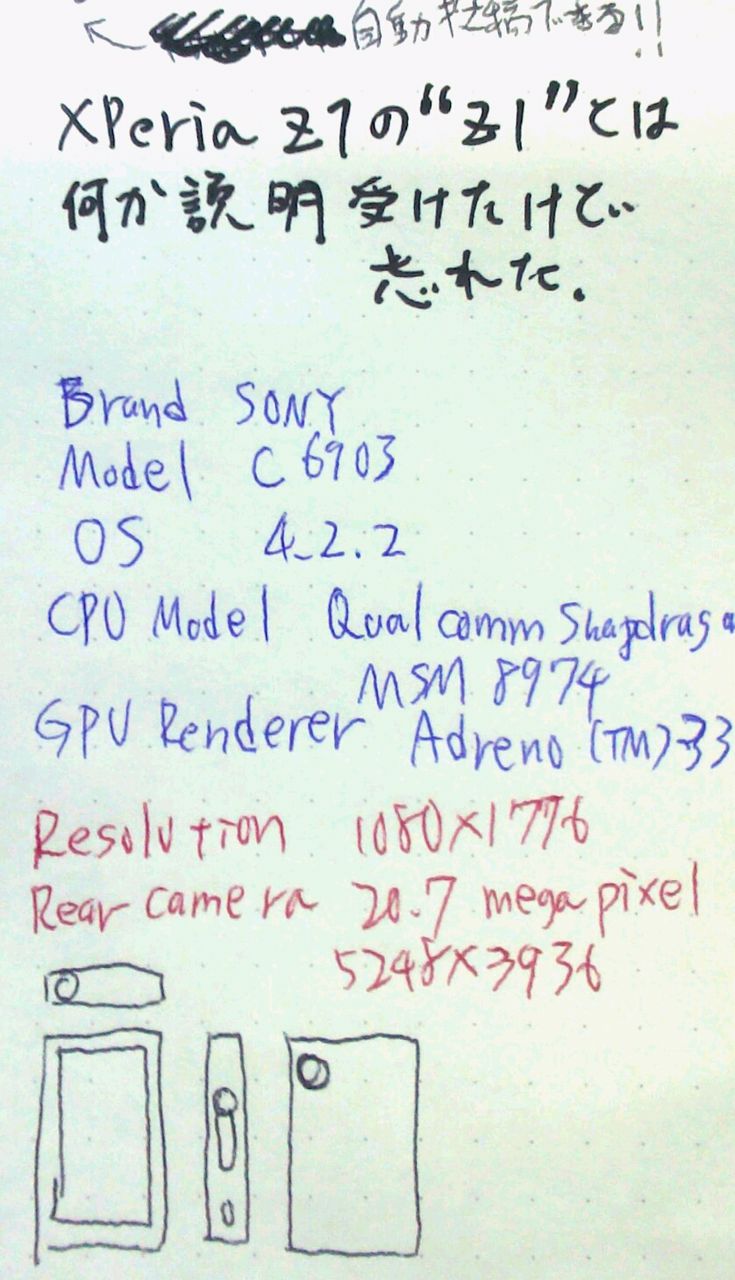 自動投稿できる!!
XPeria Z1の“Z1”とは
何か説明受けたけど
忘れた.
Brand SONY
Model C6903
OS 4.2.2
CPU Model Qualcomm Snapdrago
MSM 8974
GPU Renderer Adreno (TM) 33
Resolution 1080×1776
Rear camera 20.7 mega pixel
5248×3936